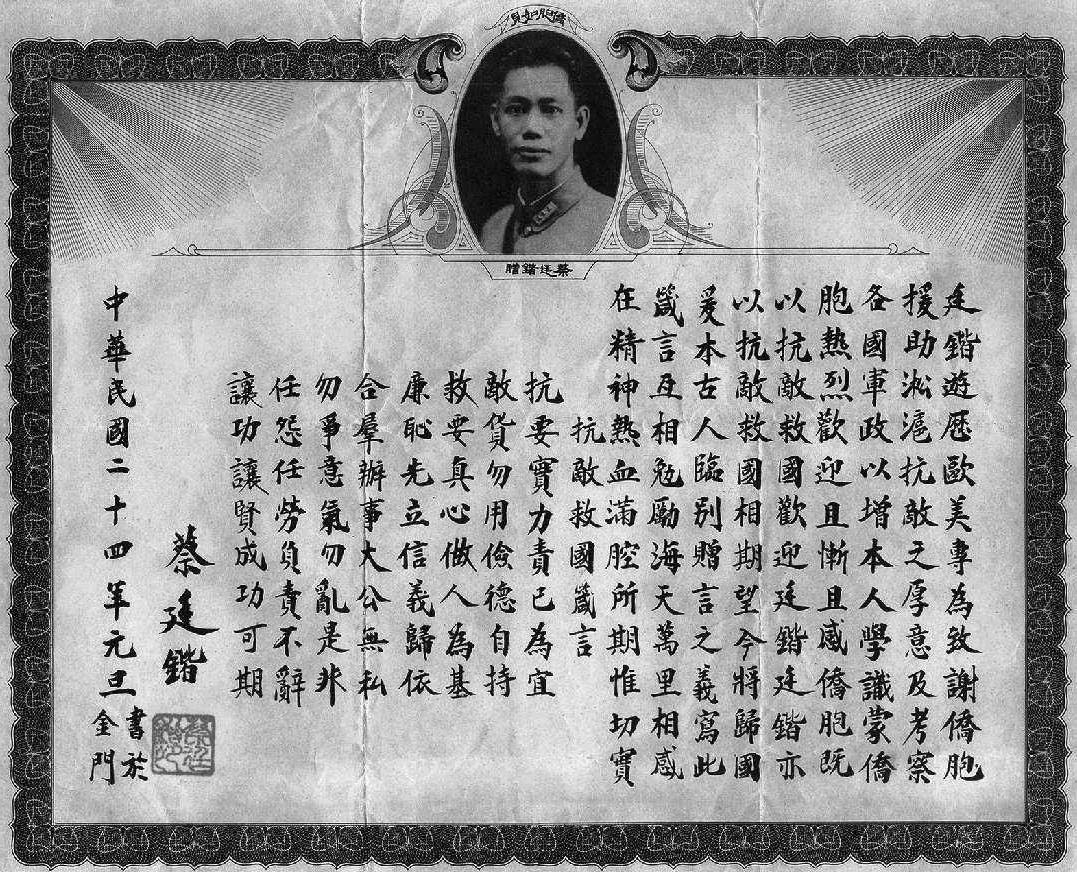 僑胞如見
蔡廷鍇贈
廷鍇遊歷歐美專為致謝僑胞
援助淞滬抗敵之厚意及考察
各國軍政以增本人學識蒙僑
胞熱烈歡迎且慚且感僑胞既
以抗敵救國歡迎廷鍇廷鍇亦
以抗敵救國相期望今將歸國
爰本古人臨別贈言之義寫此
箴言互相勉勵海天萬里相感
在精神熱血滿腔所期惟切實
抗敵救國箴言
抗要實力責已為宜
敵貨勿用儉德自持
救要真心做人為基
廉恥先立信義歸依
合羣辦事大公無私
勿爭意氣勿亂是非
任怨任勞負責不辭
讓功讓賢成功可期
蔡廷鍇
中華民國二十四年元旦
書於
金門